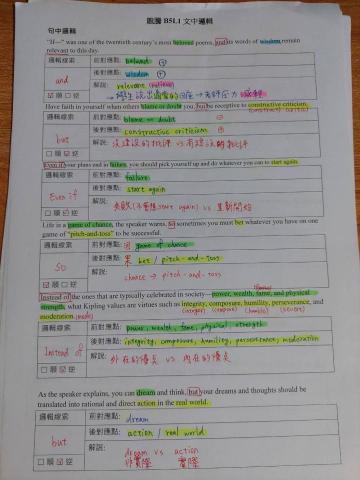 龍騰 B5L1 文中邏輯
句中邏輯
"If—" was one of the twentieth century's most beloved poems, and its words of wisdom remain
relevant to this day.
邏輯線索 前對應點: beloved ⊕
and 後對應點: wisdom ⊕
解說: relevant
☑ 順 ☐ 逆
Have faith in yourself when others blame or doubt you, but be receptive to constructive criticism.
邏輯線索 前對應點: blame or doubt
but 後對應點: constructive criticism
解說: 沒建設的批評 vs 有建設的批評
☐ 順 ☑ 逆
Even if your plans end in failure, you should pick yourself up and do whatever you can to start again.
邏輯線索 前對應點: failure
Even if 後對應點: start again
解說: 失敗 (不會想 start again) vs 重新開始
☐ 順 ☑ 逆
Life is a game of chance, the speaker warns, so sometimes you must bet whatever you have on one
game of "pitch-and-toss" to be successful.
邏輯線索 前對應點: 因 game of chance
so 後對應點: 果 bet / pitch-and-toss
解說: chance → pitch-and-toss
☑ 順 ☐ 逆
Instead of the ones that are typically celebrated in society—power, wealth, fame, and physical
strength, what Kipling values are virtues such as integrity, composure, humility, perseverance, and
moderation
邏輯線索 前對應點: power, wealth, fame, physical strength
Instead of 後對應點: integrity, composure, humility, perseverance, moderation
解說: 外在的優點 vs 內在的優點
☐ 順 ☑ 逆
As the speaker explains, you can dream and think, but your dreams and thoughts should be
translated into rational and direct action in the real world.
邏輯線索 前對應點: dream
but 後對應點: action / real world
解說: dream vs action
☐ 順 ☑ 逆 非實際 實際